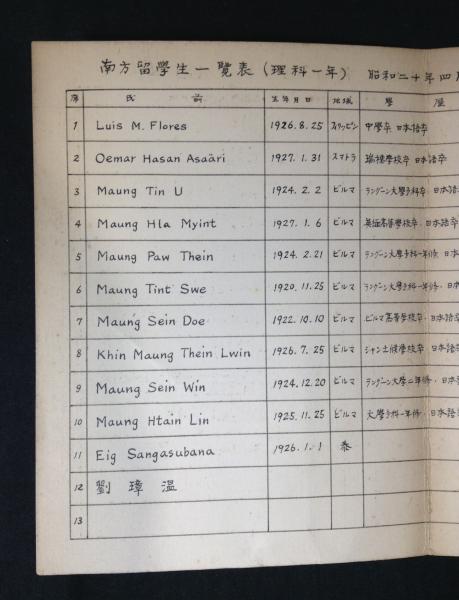 南方留學生一覽表(理科一年) 昭和二十年四月
序 氏 前 生年月日 地域 學 歷
1 Luis M. Flores 1926.8.25 フィリッピン 中學卒 日本語卒
2 Oemar Hasan Asaäri 1927.1.31 スマトラ 學校卒 日本語
3 Maung Tin U 1924.2.2 ビルマ ラングーン大學予科卒・日本語
4 Maung Hla Myint 1927.1.6 ビルマ 英緬高等學校卒・日本語卒
5 Maung Paw Thein 1924.2.21 ビルマ ラングーン大學予科一年修 日本
6 Maung Tint Swe 1920.11.25 ビルマ ラングーン大學予科一年修・日本
7 Maung Sein Doe 1922.10.10 ビルマ ビルマ高等學校卒・日本語
8 Khin Maung Thein Lwin 1926.7.25 ビルマ シャン土候學校卒・日本語
9 Maung Sein Win 1924.12.20 ビルマ ラングーン大學二年修・日本語
10 Maung Htain Lin 1925.11.25 ビルマ 大學予科一年修・日本語
11 Eig Sangasubana 1926.1.1 泰
12 劉璋溫
13